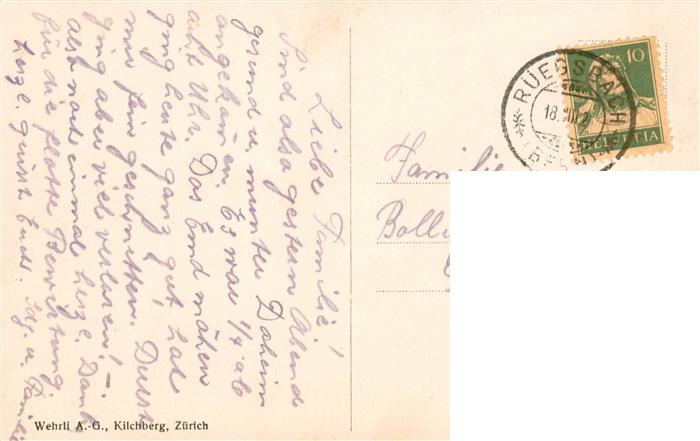 Liebe Familie!
Sind also gestern Abend
gesund u. munter Daheim
angekomen. Es war 1/4 ab
acht Uhr. Das Emd mähen
ging heute ganz gut, hat
mir fein geschnitten. Durst
ging aber viel verloren! –
also noch einmal herzl. Dank
für die flotte Bewirtung
herzl. grüsst Euch. u. Familie
Wehrli A.-G., Kilchberg, Zürich
10
HELVETIA
RÜEGSBACH
18.
(BERN)
Famili
Bolli